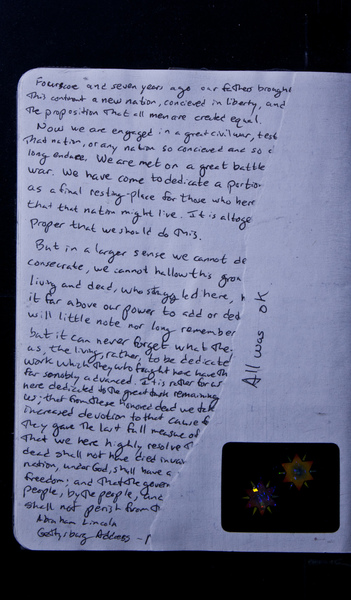 Fourscoe and seven years ago our fathers brought
this continent a new nation, concieved in liberty, and
the proposition that all men are created equal.
Now we are engaged in a great civil war, test
that nation, or any nation so concieved and so
long endures. We are met on a great battle
war. We have come to dedicate a portion
as a final resting-place for those who here
that that nation might live. It is altoge
proper that we should do this.
But in a larger sense we cannot de
consecrate, we cannot hallow this groun
living and dead, who struggled here, h
it far above our power to add or ded
will little note nor long remember
but it can never forget what the
as, the living, rather, to be dedicate
work which they who fought here have th
far so nobly advanced. It is rather for us
here dedicated to the great task remaining
us; that from these honored dead we take
increased devotion to that cause f
they gave the last full measure of
that we here highly resolve t
dead shall not have died in vain
nation, under God, shall have a
freedom; and that the govern
people, by the people, and
shall not perish from t
Abraham Lincoln
Gettysburg Address -
All was OK